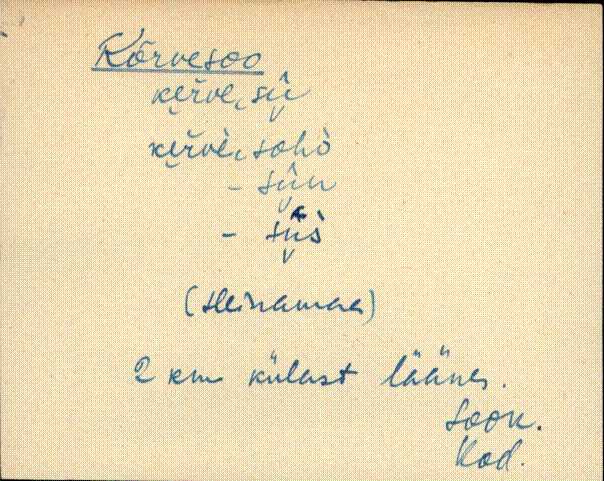 Kõrvesoo
ke̮rve, sii̬
ke̮rve, sohò
- sii̬n
- sii̬s
(Heinamaa)
2 km külast läänes.
Soon.
Kod.